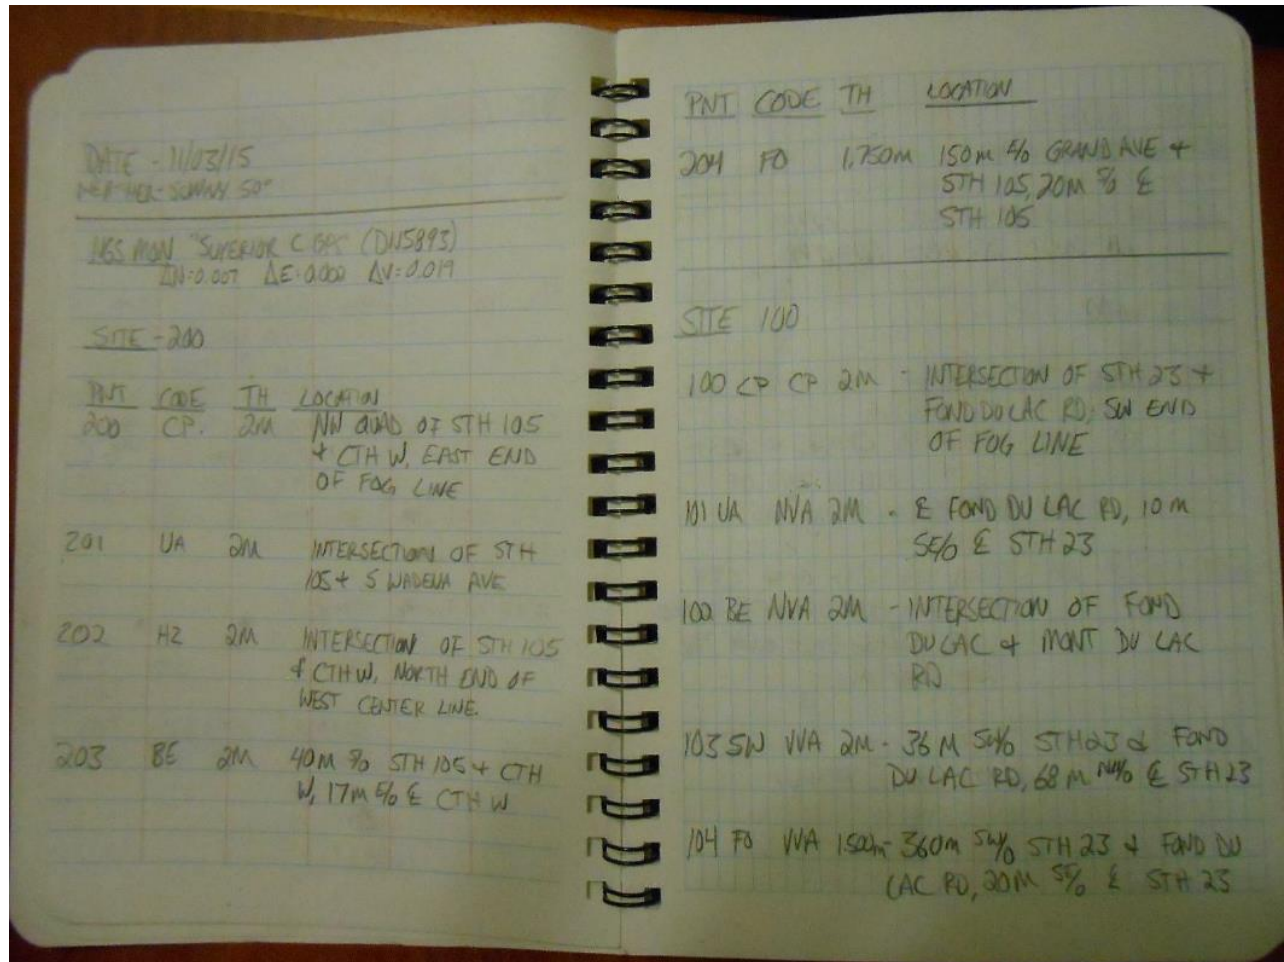 DATE - 11/03/15
WEATHER - SUNNY 50°
NGS MON "SUPERIOR C GPS" (DN5893)
ΔN=0.007 ΔE=0.002 ΔV=0.019
SITE - 200
PNT CODE TH LOCATION
200 CP. 2M NW QUAD OF STH 105
+ CTH W, EAST END
OF FOG LINE
201 UA 2M INTERSECTION OF STH
105 + S WADENA AVE
202 HZ 2M INTERSECTION OF STH 105
& CTH W, NORTH END OF
WEST CENTER LINE.
203 BE 2M 40M STH 105 + CTH
W, 17M E/O ℄ CTH W
PNT CODE TH LOCATION
204 FO 1.750M 150M E/O GRAND AVE +
STH 105, 20M S/O ℄
STH 105
SITE 100
100 CP CP 2M - INTERSECTION OF STH 23 +
FOND DU LAC RD, SW END
OF FOG LINE
101 UA NVA 2M - ℄ FOND DU LAC RD, 10 M
SE/O ℄ STH 23
102 BE NVA 2M - INTERSECTION OF FOND
DU LAC + MONT DU LAC
RD
103 SW VVA 2M - 36 M SW/O STH 23 & FOND
DU LAC RD, 68 M NW/O ℄ STH 23
104 FO VVA 1.500m - 360m SW/O STH 23 + FOND DU
LAC RD, 20M SE/O ℄ STH 23